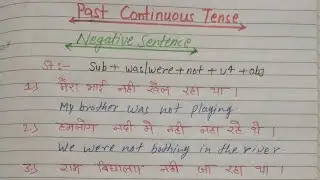 Past Continuous Tense
Negative Sentence
St:- Sub + was/were + not + v4 + obj
1.) मेरा भाई नहीं खेल रहा था ।
My brother was not playing
2.) हमलोग नदी में नहीं नहा रहे थे ।
We were not bothing in the river
3.) राम विद्यालय नहीं जा रहा था ।